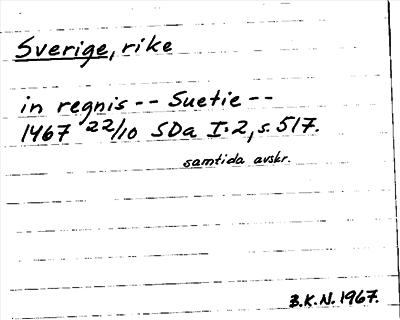 Sverige, rike
in regnis -- Suetie --
1467 22/10 SDa I:2, s. 517.
samtida avskr.
B.K.N. 1967.